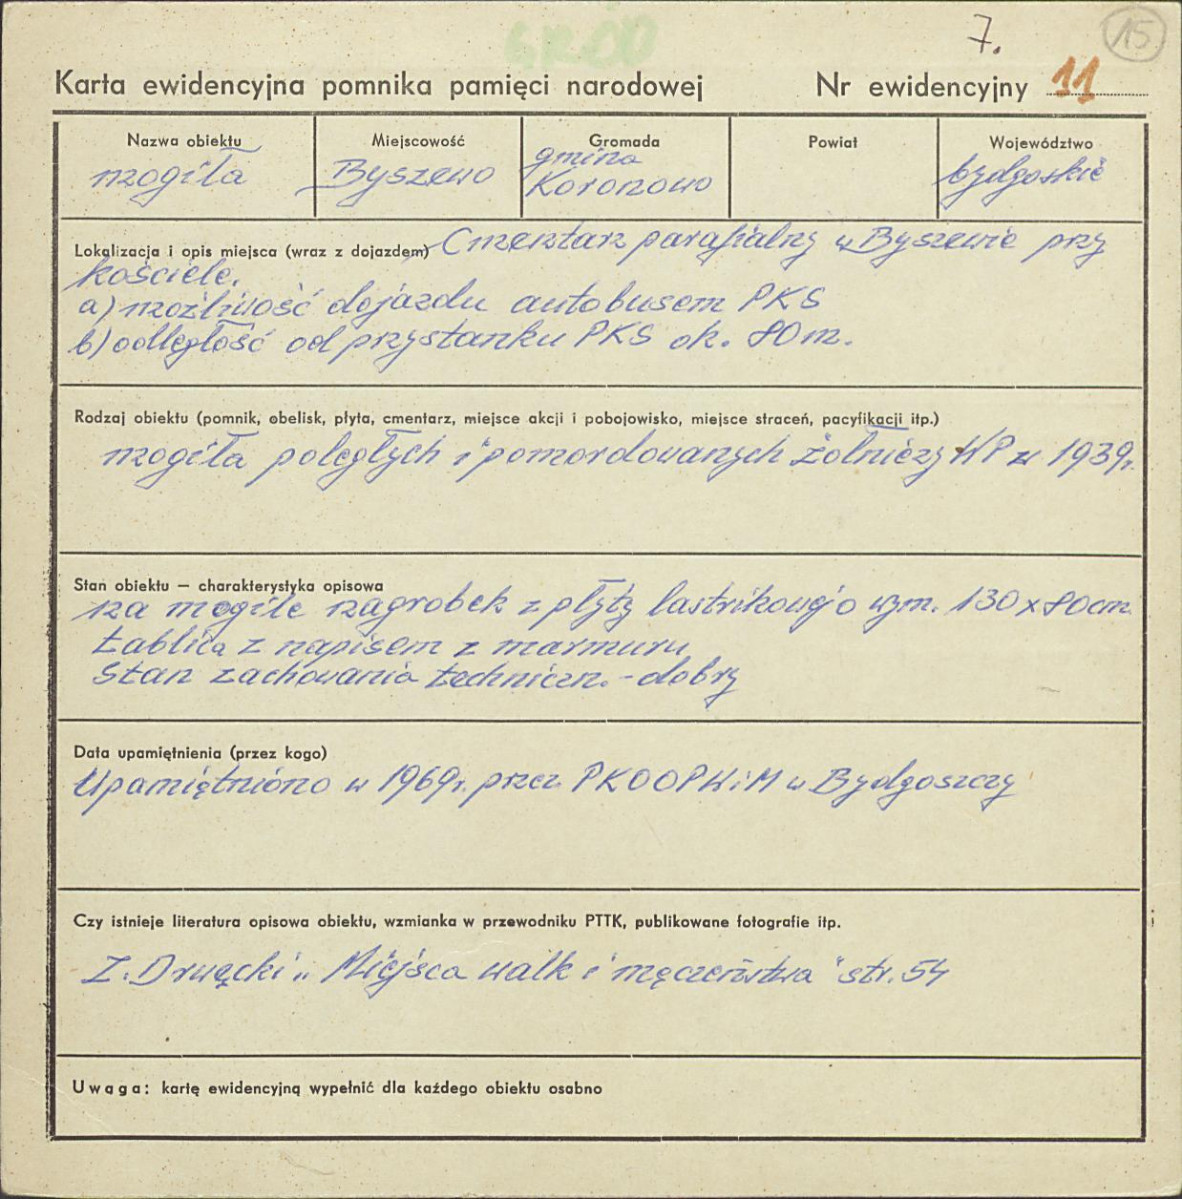 7. 15
Karta ewidencyjna pomnika pamięci narodowej Nr ewidencyjny 11
Nazwa obiektu Miejscowość Gromada Powiat Województwo
mogiła Byszewo gmina Koronowo bydgoskie
Lokalizacja i opis miejsca (wraz z dojazdem) Cmentarz parafialny w Byszewie przy
kościele.
a) możliwość dojazdu autobusem PKS
b) odległość od przystanku PKS ok. 80m.
Rodzaj obiektu (pomnik, obelisk, płyta, cmentarz, miejsce akcji i pobojowisko, miejsce straceń, pacyfikacji itp.)
mogiła poległych i pomordowanych żołnierzy WP z 1939r.
Stan obiektu — charakterystyka opisowa
na mogile nagrobek z płyty lastrikowej o wym. 130 x 80cm.
tablica z napisem z marmuru
Stan zachowania techniczn. - dobry
Data upamiętnienia (przez kogo)
Upamiętniono w 1969r. przez PKOOPWiM w Bydgoszczy
Czy istnieje literatura opisowa obiektu, wzmianka w przewodniku PTTK, publikowane fotografie itp.
Z. Drwęcki „Miejsca walk i męczeństwa" str. 54
Uwaga: kartę ewidencyjną wypełnić dla każdego obiektu osobno